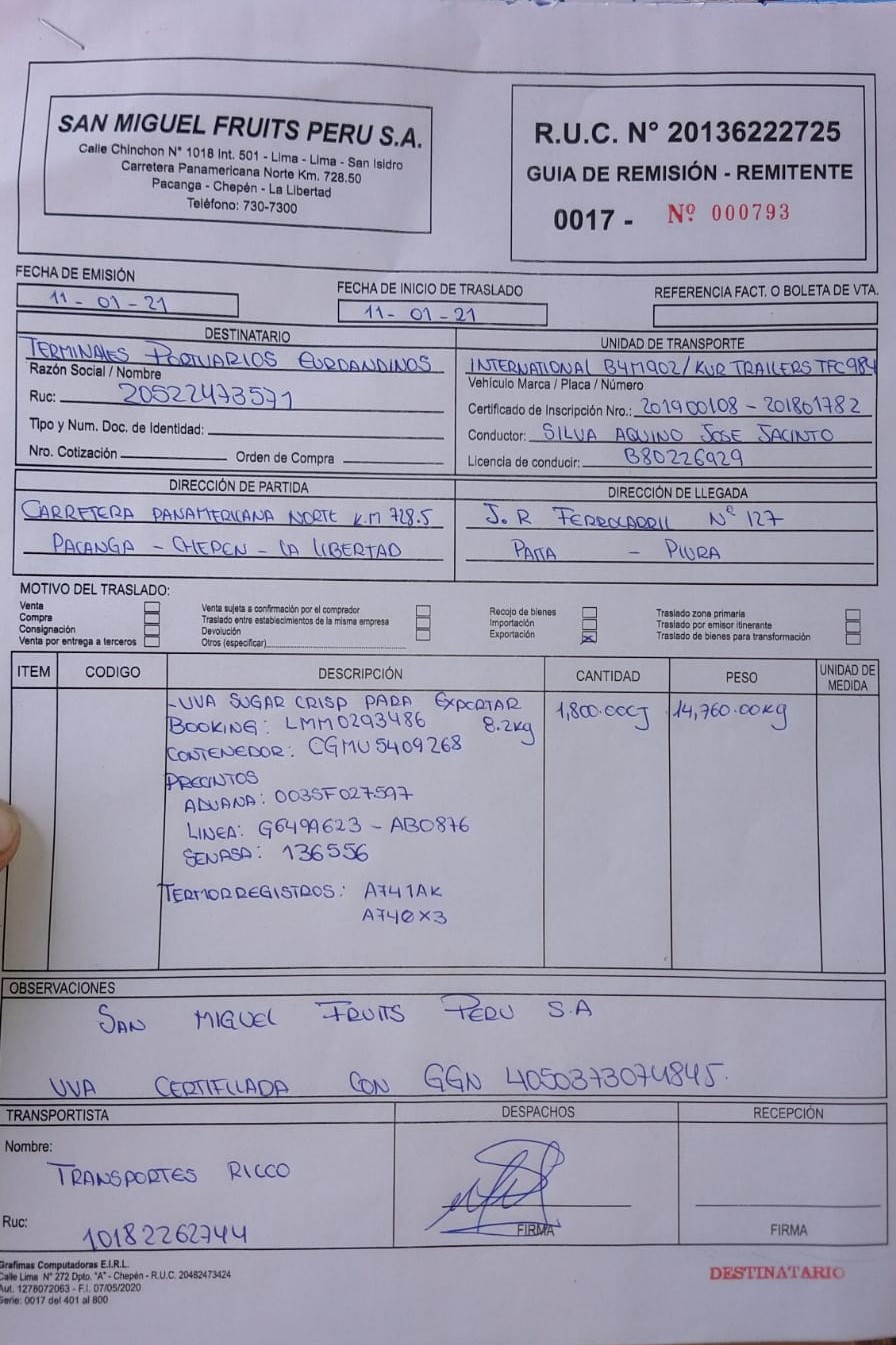 SAN MIGUEL FRUITS PERU S.A.
Calle Chinchon N° 1018 Int. 501 - Lima - Lima - San Isidro
Carretera Panamericana Norte Km. 728.50
Pacanga - Chepén - La Libertad
Teléfono: 730-7300
R.U.C. N° 20136222725
GUIA DE REMISIÓN - REMITENTE
0017 - Nº 000793
FECHA DE EMISIÓN
11 - 01 - 21
FECHA DE INICIO DE TRASLADO
11 - 01 - 21
REFERENCIA FACT. O BOLETA DE VTA.
DESTINATARIO
TERMINALES PORTUARIOS EUROANDINOS
Razón Social / Nombre
Ruc: 20522473571
Tipo y Num. Doc. de Identidad:
Nro. Cotización Orden de Compra
UNIDAD DE TRANSPORTE
INTERNATIONAL B4M902 / KUR TRAILERS TFC984
Vehículo Marca / Placa / Número
Certificado de Inscripción Nro.: 201900108 - 201801782
Conductor: SILVA AQUINO JOSE JACINTO
Licencia de conducir: B80226929
DIRECCIÓN DE PARTIDA
CARRETERA PANAMERICANA NORTE K.M 728.5
PACANGA - CHEPEN - LA LIBERTAD
DIRECCIÓN DE LLEGADA
J.R FERROCARRIL Nº 127
PAITA - PIURA
MOTIVO DEL TRASLADO:
Venta
Compra
Consignación
Venta por entrega a terceros
Venta sujeta a confirmación por el comprador
Traslado entre establecimientos de la misma empresa
Devolución
Otros (especificar)
Recojo de bienes
Importación
Exportación X
Traslado zona primaria
Traslado por emisor itinerante
Traslado de bienes para transformación
ITEM CODIGO DESCRIPCIÓN CANTIDAD PESO UNIDAD DE MEDIDA
- UVA SUGAR CRISP PARA EXPORTAR 1,800.00CJ 14,760.00kg
BOOKING: LMM0293486 8.2kg
CONTENEDOR: CGMU5409268
PRECINTOS
ADUANA: 003SF027597
LINEA: G6499623 - AB0876
SENASA: 136556
TERMORREGISTROS: A741AK
A740X3
OBSERVACIONES
SAN MIGUEL FRUITS PERU S.A
UVA CERTIFICADA CON GGN 4050373074845.
TRANSPORTISTA
Nombre:
TRANSPORTES RICCO
Ruc:
10182262744
DESPACHOS
FIRMA
RECEPCIÓN
FIRMA
Grafimas Computadoras E.I.R.L.
Calle Lima N° 272 Dpto. "A" - Chepén - R.U.C. 20482473424
Aut. 1278072063 - F.I. 07/05/2020
Serie: 0017 del 401 al 800
DESTINATARIO